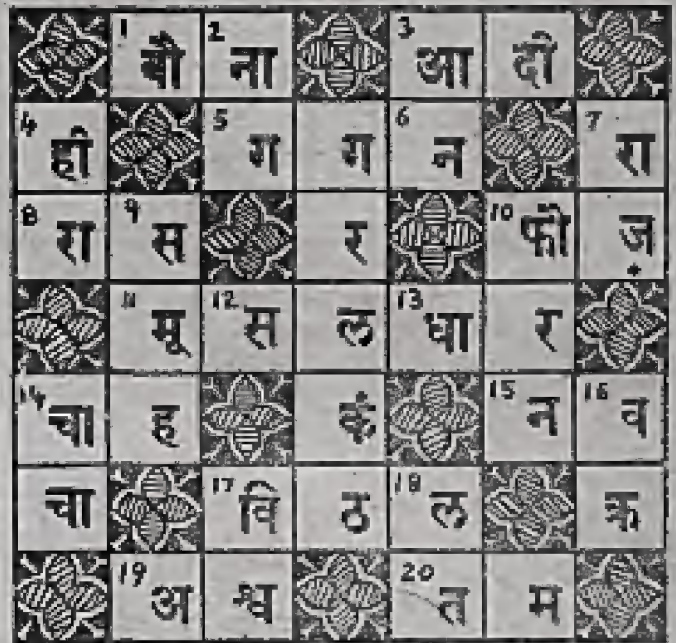 1 बौ 2 ना 3 आ दी
4 ही 5 ग ग 6 न 7 रा
8 रा 9 स र 10 फी ज़
11 मू 12 स ल 13 धा र
14 चा ह कं 15 न 16 व
चा 17 वि ठ 18 ल क्र
19 अ श्व 20 त म